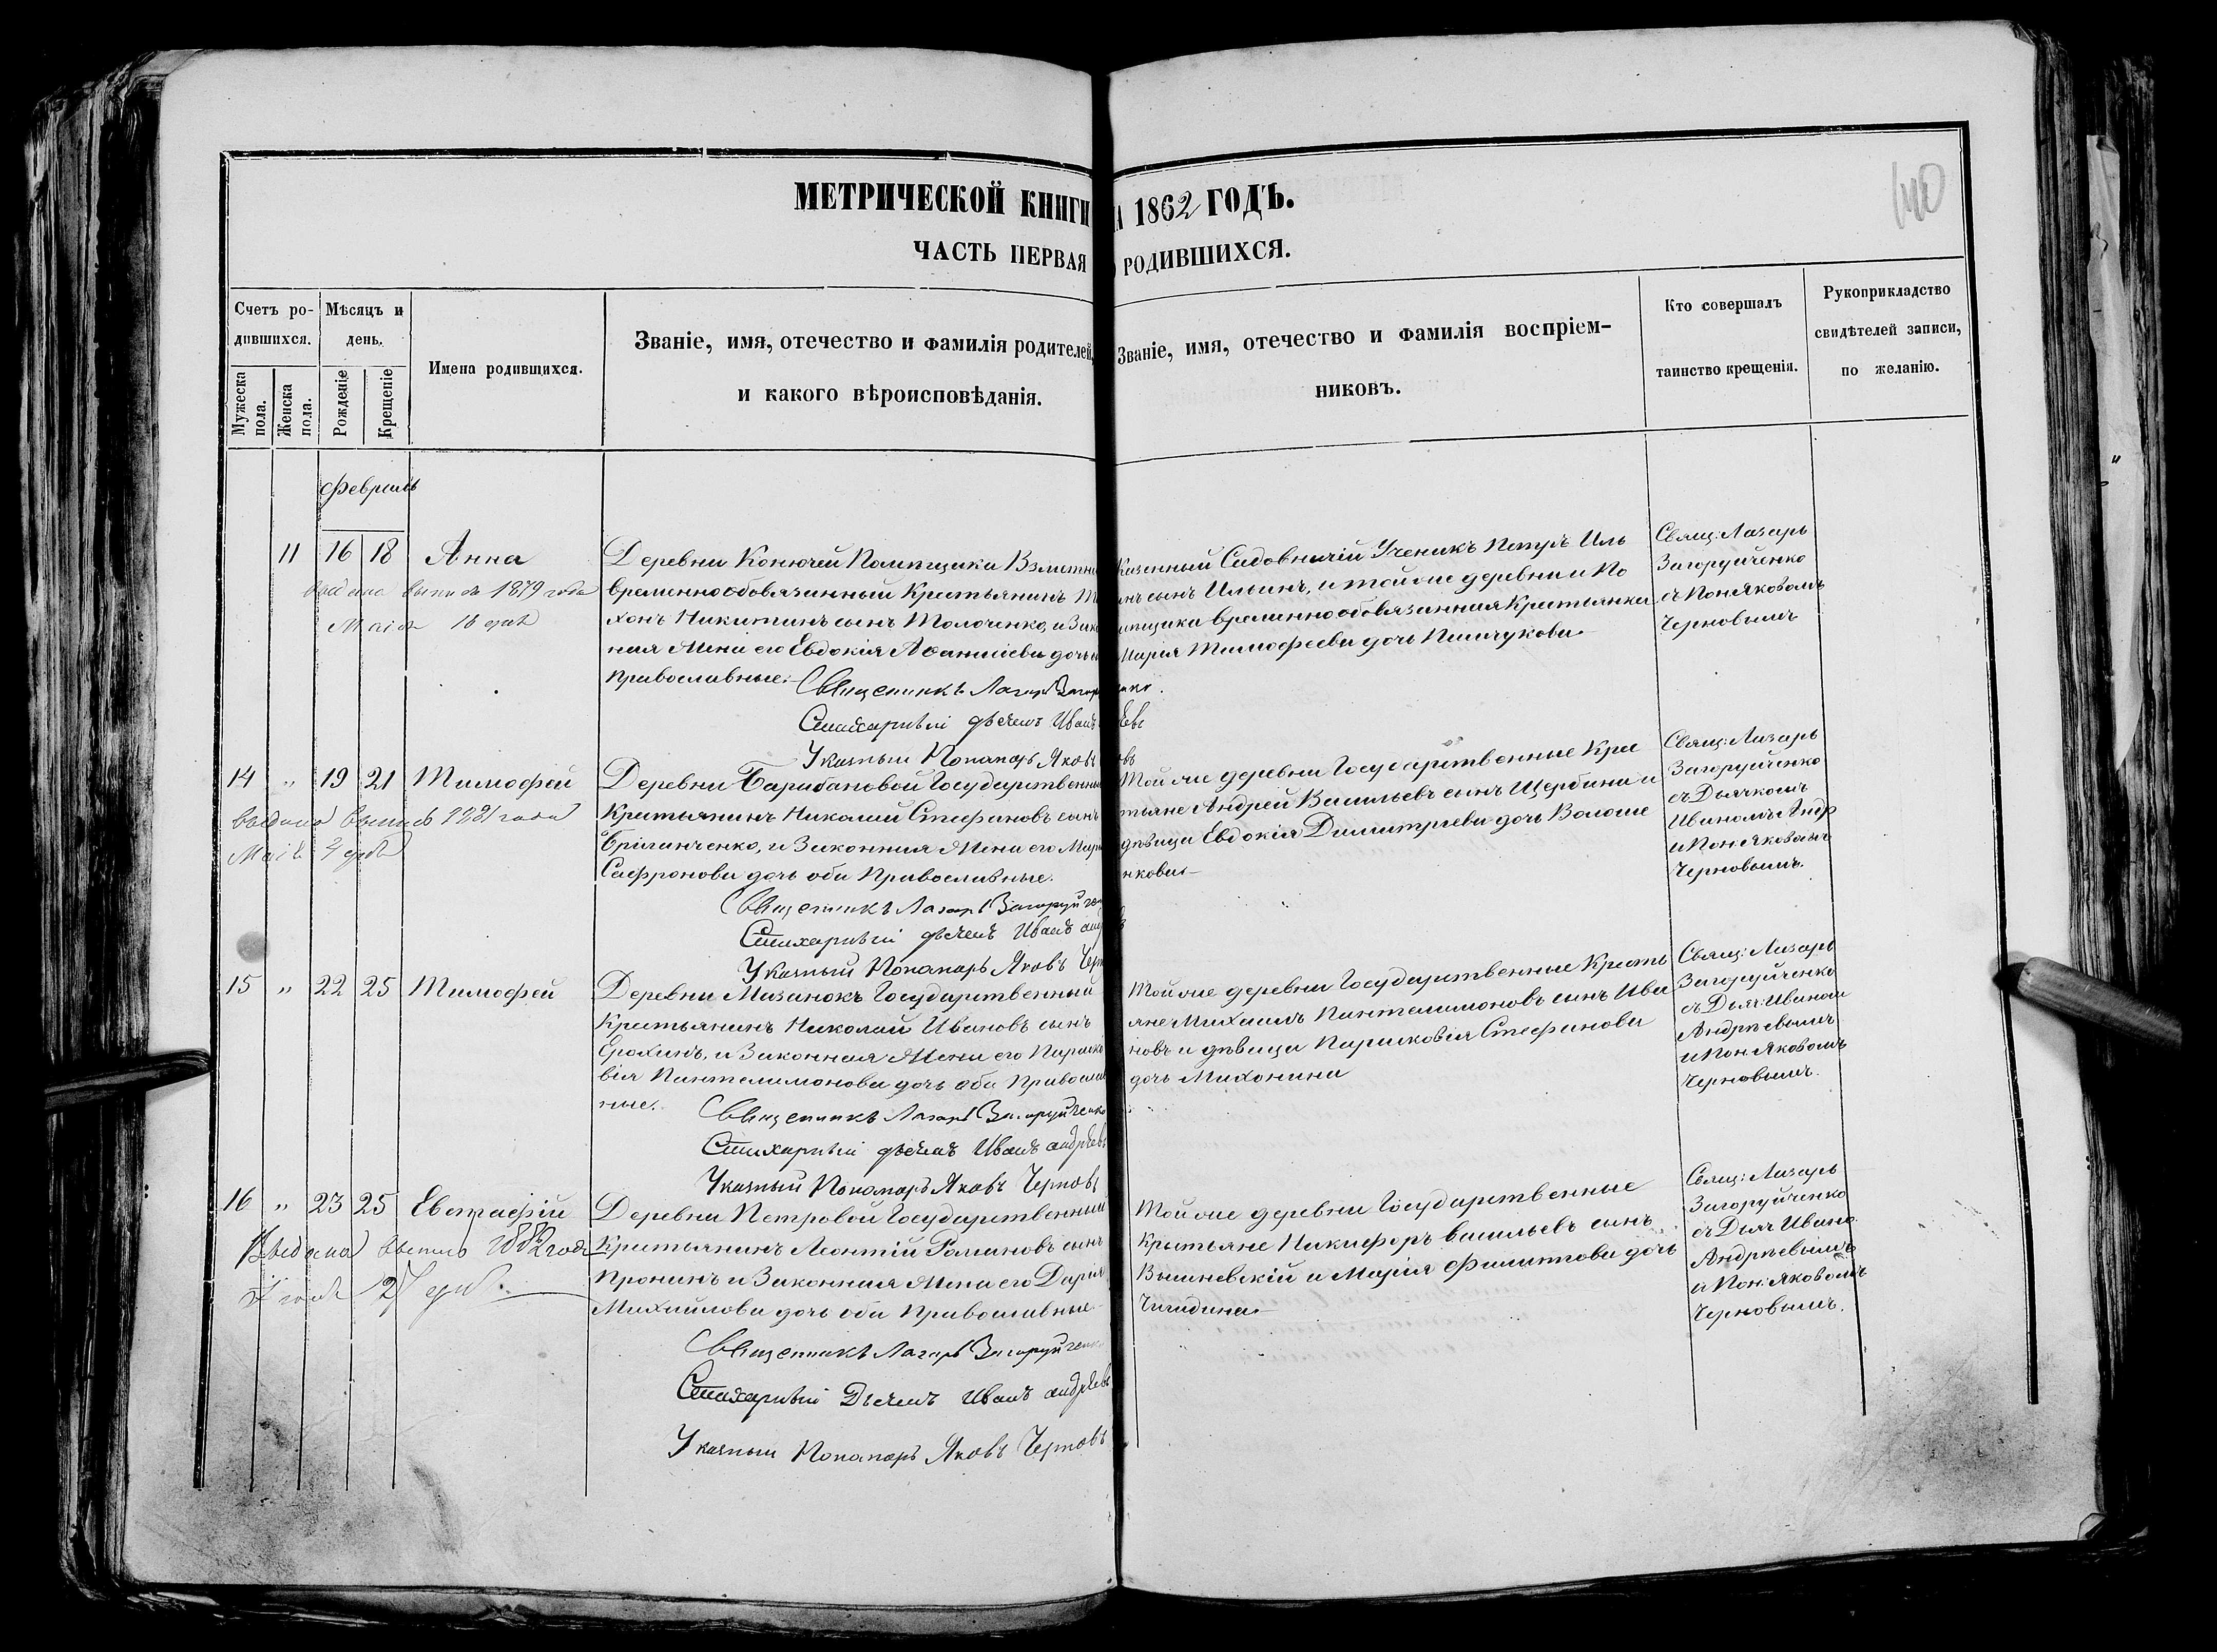 МЕТРИЧЕСКОЙ КНИГИ
А 1862 ГОДЪ.
140
ЧАСТЬ ПЕРВАЯ
РОДИВШИХСЯ.
Счетъ ро-
дившихся.
Мужеска
пола.
Женска
пола.
Мѣсяцъ и
день.
Рожденіе
Крещеніе
Имена родившихся.
Званіе, имя, отечество и фамилія родителей,
и какого вѣроисповѣданія.
Званіе, имя, отечество и фамилія воспріем-
никовъ.
Кто совершалъ
таинство крещенія.
Рукоприкладство
свидѣтелей записи,
по желанію.
Февраль
11 16 18 Анна
выдана выпись 1879 года
Мая 16 дня
Деревни Конючей Помѣщика
временнообовязанный Крестьянинъ Ти
хонъ Никитинъ сынъ Толоченко, и Зако
ная Жена его Евдокія Аѳанасіева дочь
православные.
Священникъ Лазарь Загор
Стихарный дьячекъ Иванъ
Указный Пономарь Яковъ
Казенный Садовничій Ученикъ Петръ Иль
инъ сынъ Ильинъ, и той же деревни По
мѣщика временнообовязанная Крестьянка
Марія Тимофеева дочь Пинчукова
Свящ: Лазарь
Загоруйченко
съ Пон: Яковомъ
Черновымъ
14 „ 19 21 Тимофей
выдана выпись 1881 года
Мая 4 дня
Деревни Барабановой Государственный
Крестьянинъ Николай Стефановъ сынъ
Бріганченко, и Законная Жена его Мар
Сафронова дочь оба Православные.
Священникъ Лазарь Загоруйчен
Стихарный дьячекъ Иванъ анд
Указный Пономарь Яковъ Черн
Той же деревни Государственные Кре
тьяне Андрей Васильевъ сынъ Щербина и
дѣвица Евдокія Димитріева дочь Волоше
нкова
Свящ: Лазарь
Загоруйченко
съ Дьячкомъ
Иваномъ Андр
и Пон: Яковомъ
Черновымъ.
15 „ 22 25 Тимофей
Деревни Мазанокъ Государственный
Крестьянинъ Николай Ивановъ сынъ
Ерохинъ, и Законная Жена его Параске
вія Пантелимонова дочь оба Православ
ные.
Священникъ Лазарь Загоруйченко
Стихарный дьячекъ Иванъ андрѣевъ
Указный Пономарь Яковъ Черновъ
Той же деревни Государственные Кресть
яне Михаилъ Пантелимоновъ сынъ Ива
новъ и дѣвица Парасковія Стефанова
дочь Михонина
Свящ: Лазарь
Загоруйченко
съ Дьяч: Иваном
Андрѣевымъ
и Пон: Яковомъ
Черновымъ.
16 „ 23 25 Евстафій
Выдана выпись 1882 года
27 дня.
Деревни Петровой Государственный
Крестьянинъ Леонтій Романовъ сынъ
Пронинъ и Законная Жена его Дарія
Михайлова дочь оба Православные
Священникъ Лазарь Загоруйченко
Стихарный Дьячекъ Иванъ андрѣевъ
Указный Пономарь Яковъ Черновъ
Той же деревни Государственные
Крестьяне Никифоръ васильевъ сынъ
Вышневскій и Марія Филиппова дочь
Чигидина
Свящ: Лазарь
Загоруйченко
съ Дьяч Ивано
Андрѣевымъ
и Пон: Яковомъ
Черновымъ.